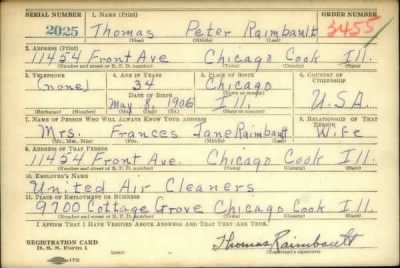 SERIAL NUMBER 1. NAME (Print) ORDER NUMBER
2025 Thomas Peter Raimbault 3455
(First) (Middle) (Last)
2. ADDRESS (Print)
11454 Front Ave Chicago Cook Ill.
(Number and street or R. F. D. number) (Town) (County) (State)
3. TELEPHONE 4. AGE IN YEARS 5. PLACE OF BIRTH 6. COUNTRY OF CITIZENSHIP
(none) 34 Chicago
DATE OF BIRTH (Town or county)
May 8, 1906 Ill. U.S.A.
(Exchange) (Number) (Mo.) (Day) (Yr.) (State or country)
7. NAME OF PERSON WHO WILL ALWAYS KNOW YOUR ADDRESS 8. RELATIONSHIP OF THAT PERSON
Mrs. Frances Jane Raimbault Wife
(Mr., Mrs., Miss) (First) (Middle) (Last)
9. ADDRESS OF THAT PERSON
11454 Front Ave. Chicago Cook Ill.
(Number and street or R. F. D. number) (Town) (County) (State)
10. EMPLOYER'S NAME
United Air Cleaners
11. PLACE OF EMPLOYMENT OR BUSINESS
9700 Cottage Grove Chicago Cook Ill.
(Number and street or R. F. D. number) (Town) (County) (State)
I AFFIRM THAT I HAVE VERIFIED ABOVE ANSWERS AND THAT THEY ARE TRUE.
REGISTRATION CARD
D. S. S. Form 1 (over) Thomas Raimbault
(Registrant's signature)